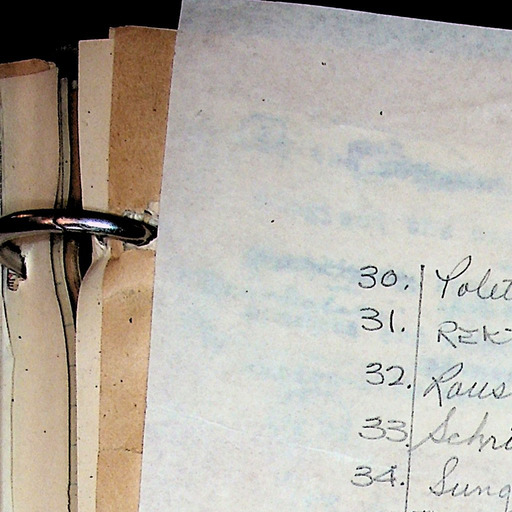 30. Polet
31. REKT
32. Raus
33. Schri
34. Sung